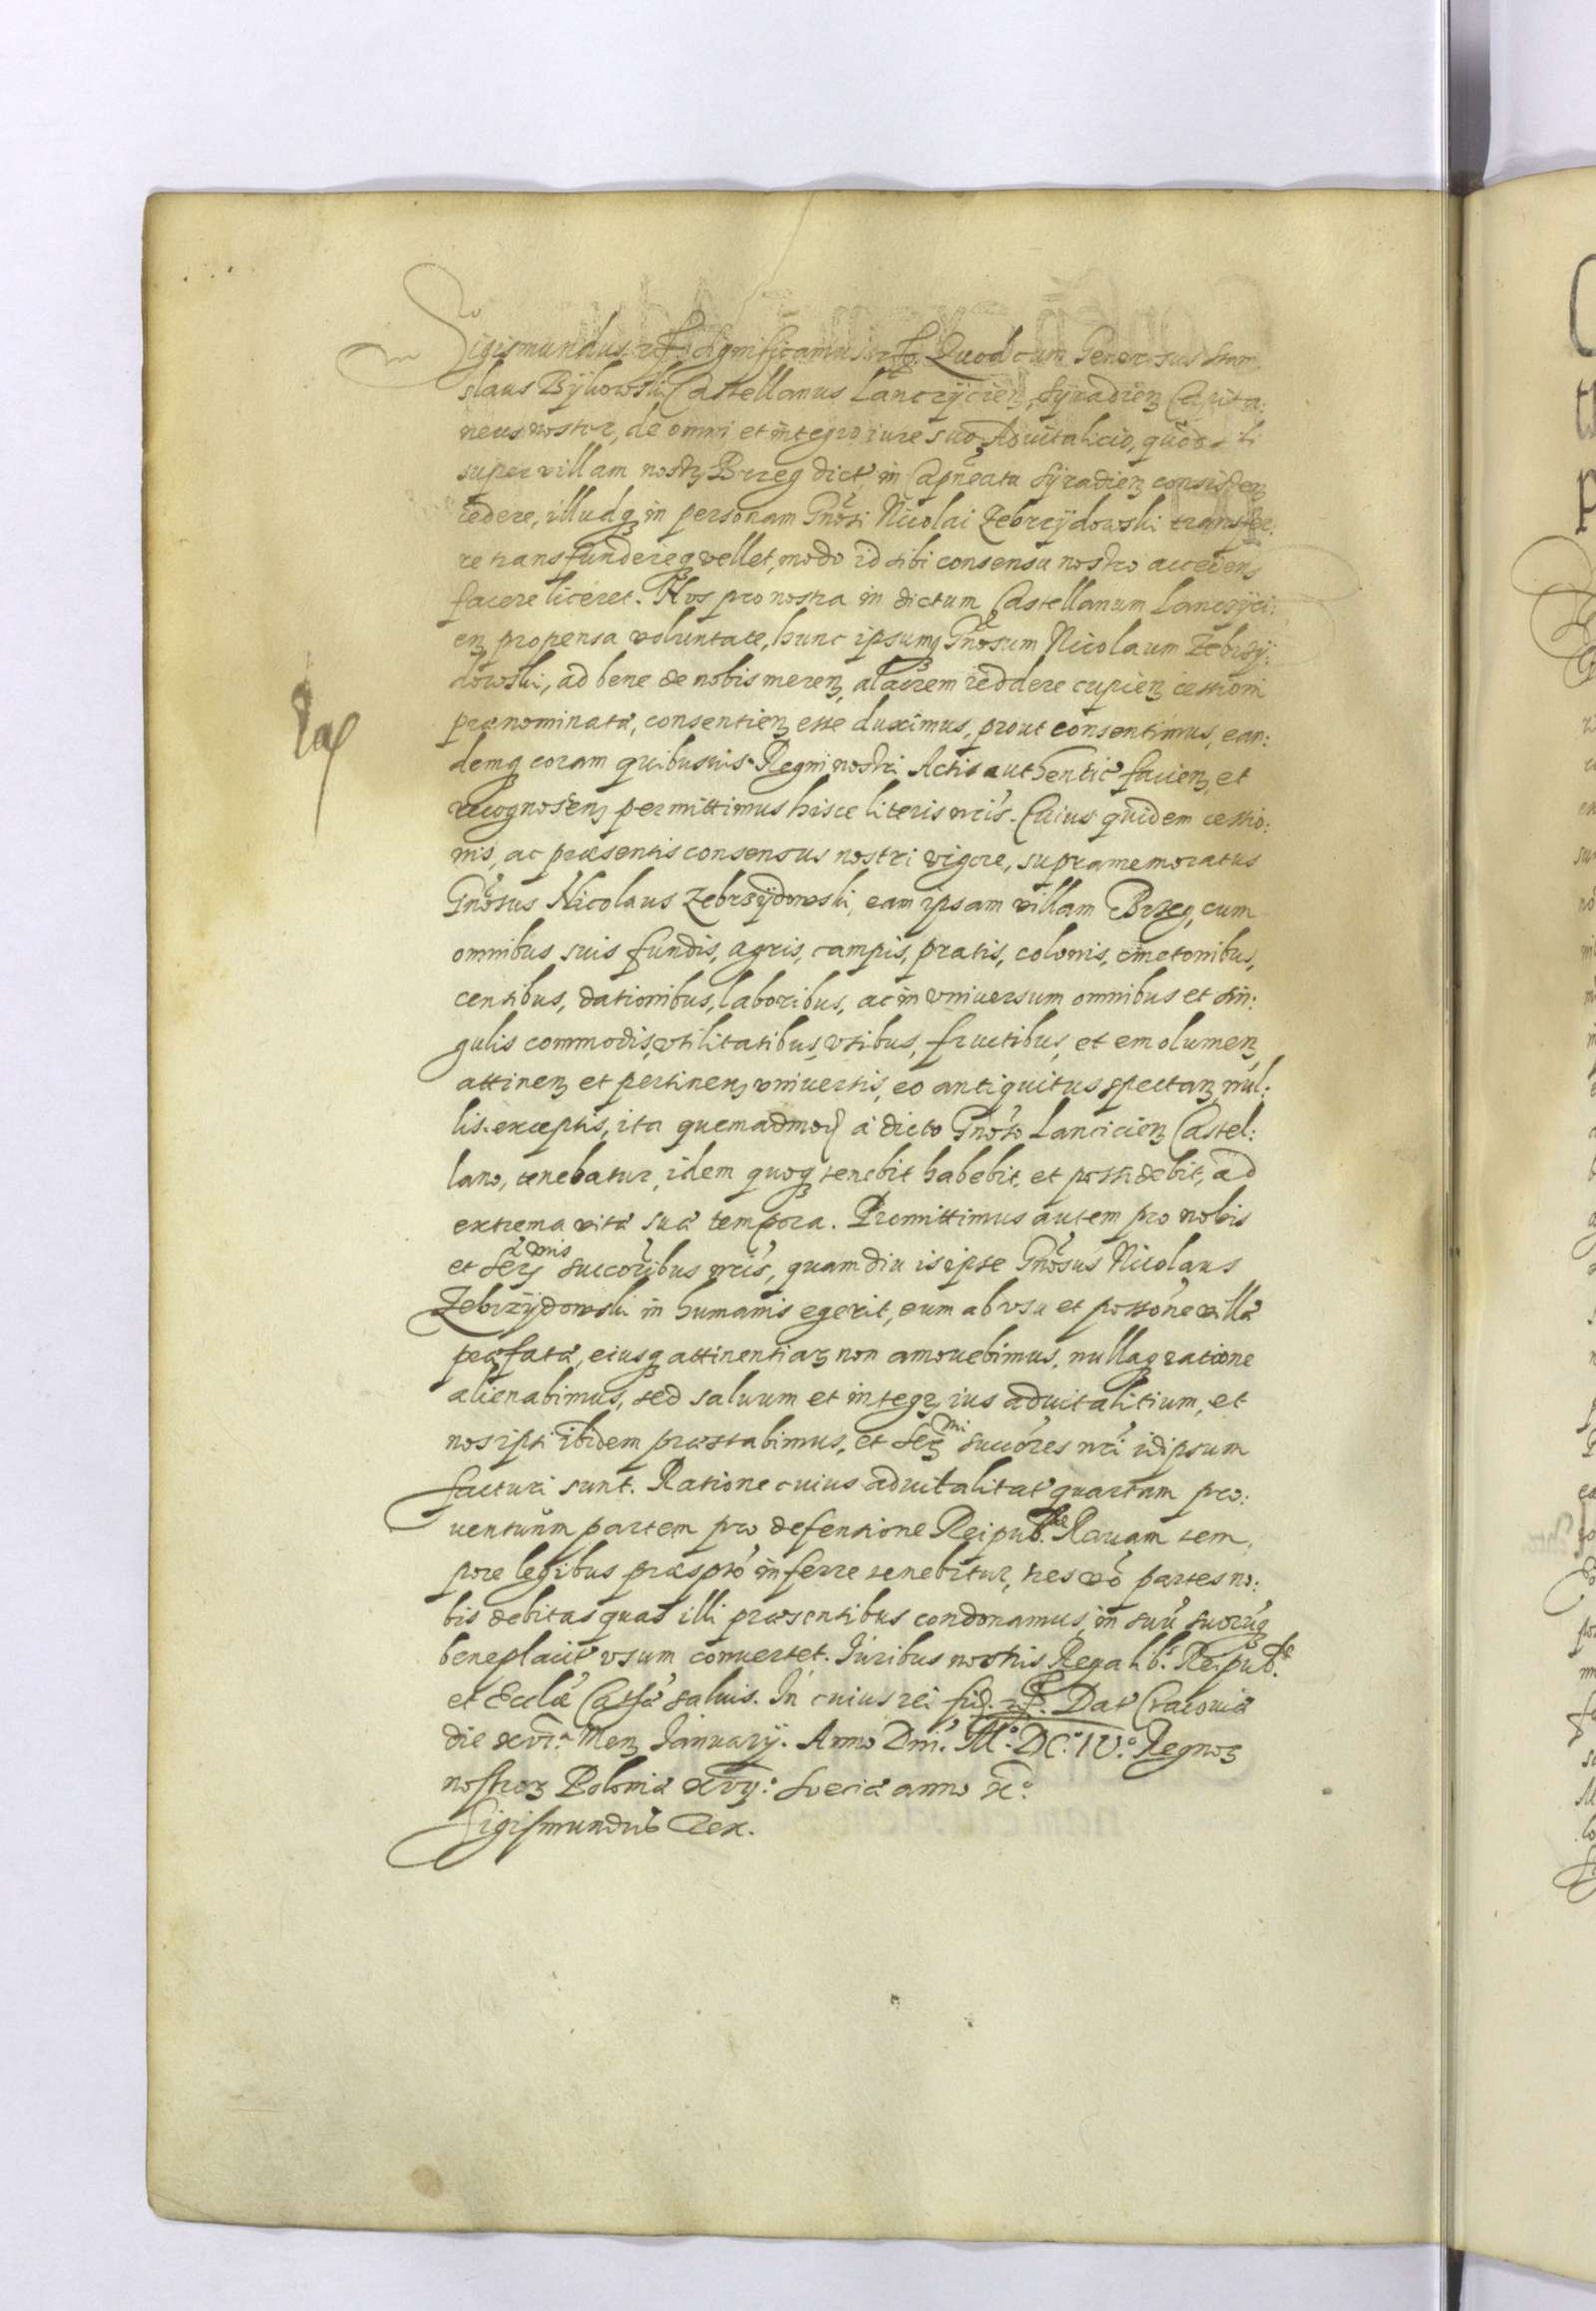 Sigismundus etc. Significamus etc. Quod cum Generosus Stani
slaus Bÿkowski Castellanus Lancÿcień, Sÿradień Capita:
neus noster, de omni et integro iure suo Aduitalicio, quod sibi
super villam nostrą Brzeg dict' in Capneatu Sÿradień consisteń
cedere, illudq in personam Gnosi Nicolai Zebrzÿdowski transfer:
re transfundereq vellet, modo id sibi consensu nostro accedeń
facere liceret. Nos pro nostra in dictum Castellanum Lancÿci:
eń propensa voluntate, hunc ipsumq Gnosum Nicolaum Zebrzÿ:
dowski, ad bene de nobis mereń, alacrem reddere cupień cessioni
prænominatæ, consentień esse duximus, prout consentimus, ean:
demq coram quibusuis Regni nostri Actis authentic' facień, et
recognosceń permittimus hisce literis nris. Cuius quidem cessio:
nis, ac præsentis consensus nostri vigore, supramemoratus
Gnosus Nicolaus Zebrzÿdowski, eam ipsam villam Brzeg, cum
omnibus suis fundis, agris, campis, pratis, colonis, cmetonibus,
censibus, dationibus, laboribus, ac in vniuersum omnibus et sin:
gulis commodis, vtilitatibus, vsibus, fructibus, et emolumeń,
attineń et pertineń vniuersis, eo antiquitus spectań, nul:
lis exceptis, ita quemadmod à dicto Gnoso Lancicień Castel:
lano, tenebatur, idem quoq tenebit habebit, et possidebit, ad
extrema vitæ suæ tempora. Promittimus autem pro nobis
et Ser mis succoribus nris, quamdiu is ipse Gnosus Nicolaus
Zebrzÿdowski in humanis egerit, eum ab vsu et possone villæ
præfatæ, eiusq attinentiarz non amouebimus, nullaq ratione
alienabimus, sed saluum et integrz ius aduitalitium, et
nos ipsi ibidem præstabimus, et Ser mi succores nri idipsum
facturi sunt. Ratione cuius aduitalitat' quartam pro:
uentuum partem pro defensione Reipub. cae Rauam tem:
pore legibus præspto inferre tenebitur, tres vo partes no:
bis debitas quas illi præsentibus condonamus, in suu suorūq
beneplacit' vsum conuertet. Iuribus nostris Regalib. Reipub. cae
et Ecclæ Cathæ saluis. In cuius rei fid. etc. Dat' Cracouiæ
die xvi.a Meń Ianuarij. Anno Dni. M.o DC.o IV.o Regnorz
nostrorz Poloniæ xvij.o Sueciæ anno x.o
Sigismundus Rex.